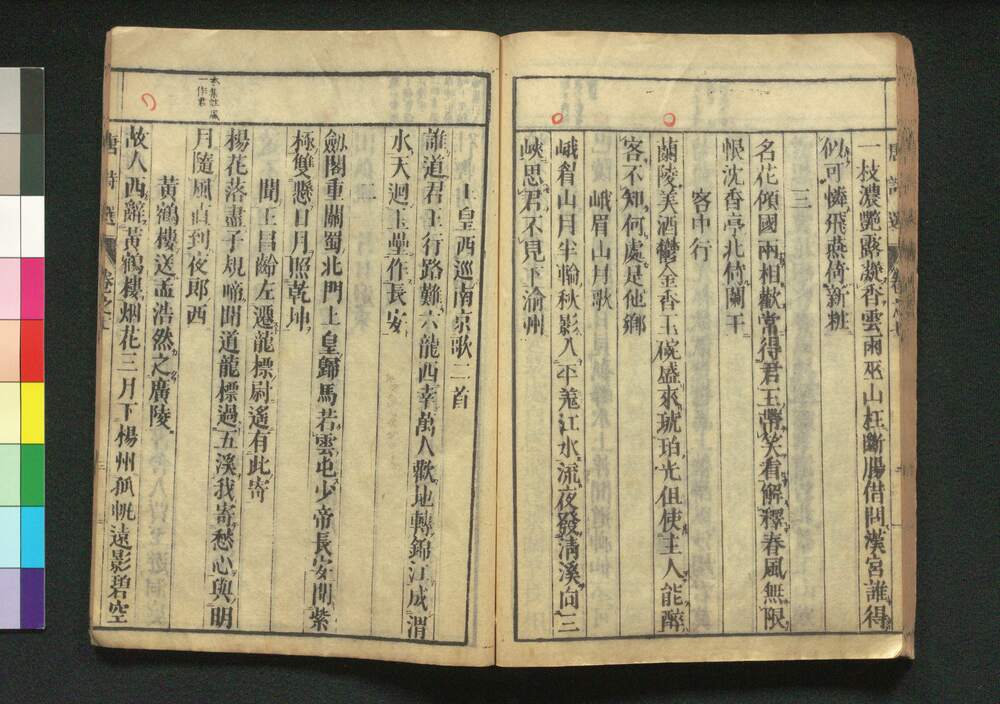 一枝濃艷露凝香雲雨巫山枉斷腸借問漢宮誰得
似可憐飛燕倚新粧
三
名花傾國兩相歡常得君王帶笑看解釋春風無限
恨沈香亭北倚闌干
客中行
蘭陵美酒鬱金香玉碗盛來琥珀光但使主人能醉
客不知何處是他鄉
峨眉山月歌
峨眉山月半輪秋影入平羗江水流夜發淸溪向三
峽思君不見下渝州
上皇西巡南京歌二首
誰道君王行路難六龍西幸萬人歡地轉錦江成渭
水天迴玉壘作長安
二
劔閣重關蜀北門上皇歸馬若雲屯少帝長安開紫
極雙懸日月照乾坤
聞王昌齡左遷龍標尉遙有此寄
楊花落盡子規啼聞道龍標過五溪我寄愁心與明
月隨風直到夜郎西
一作君
黃鶴樓送孟浩然之廣陵
故人西辭黃鶴樓烟花三月下楊州孤帆遠影碧空
唐詩選 卷之七